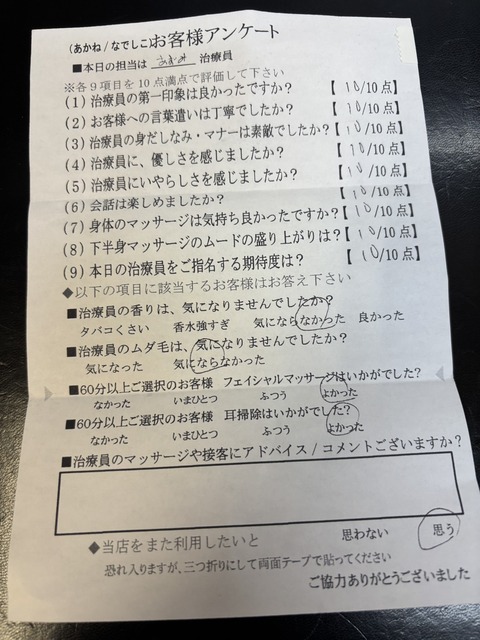 (あかね/なでしこ)お客様アンケート
■本日の担当は あずみ 治療員
※各9項目を10点満点で評価して下さい
(1)治療員の第一印象は良かったですか? 【 10/10点】
(2)お客様への言葉遣いは丁寧でしたか? 【 10/10点】
(3)治療員の身だしなみ・マナーは素敵でしたか?【 10/10点】
(4)治療員に、優しさを感じましたか? 【 10/10点】
(5)治療員にいやらしさを感じましたか? 【 10/10点】
(6)会話は楽しめましたか? 【 10/10点】
(7)身体のマッサージは気持ち良かったですか?【 10/10点】
(8)下半身マッサージのムードの盛り上がりは?【 10/10点】
(9)本日の治療員をご指名する期待度は? 【 10/10点】
◆以下の項目に該当するお客様はお答え下さい
■治療員の香りは、気になりませんでしたか?
タバコくさい 香水強すぎ 気にならなかった 良かった
■治療員のムダ毛は、気になりませんでしたか?
気になった 気にならなかった
■60分以上ご選択のお客様 フェイシャルマッサージはいかがでした?
なかった いまひとつ ふつう よかった
■60分以上ご選択のお客様 耳掃除はいかがでした?
なかった いまひとつ ふつう よかった
■治療員のマッサージや接客にアドバイス/コメントございますか?
◆当店をまた利用したいと 思わない 思う
恐れ入りますが、三つ折りにして両面テープで貼ってください
ご協力ありがとうございました